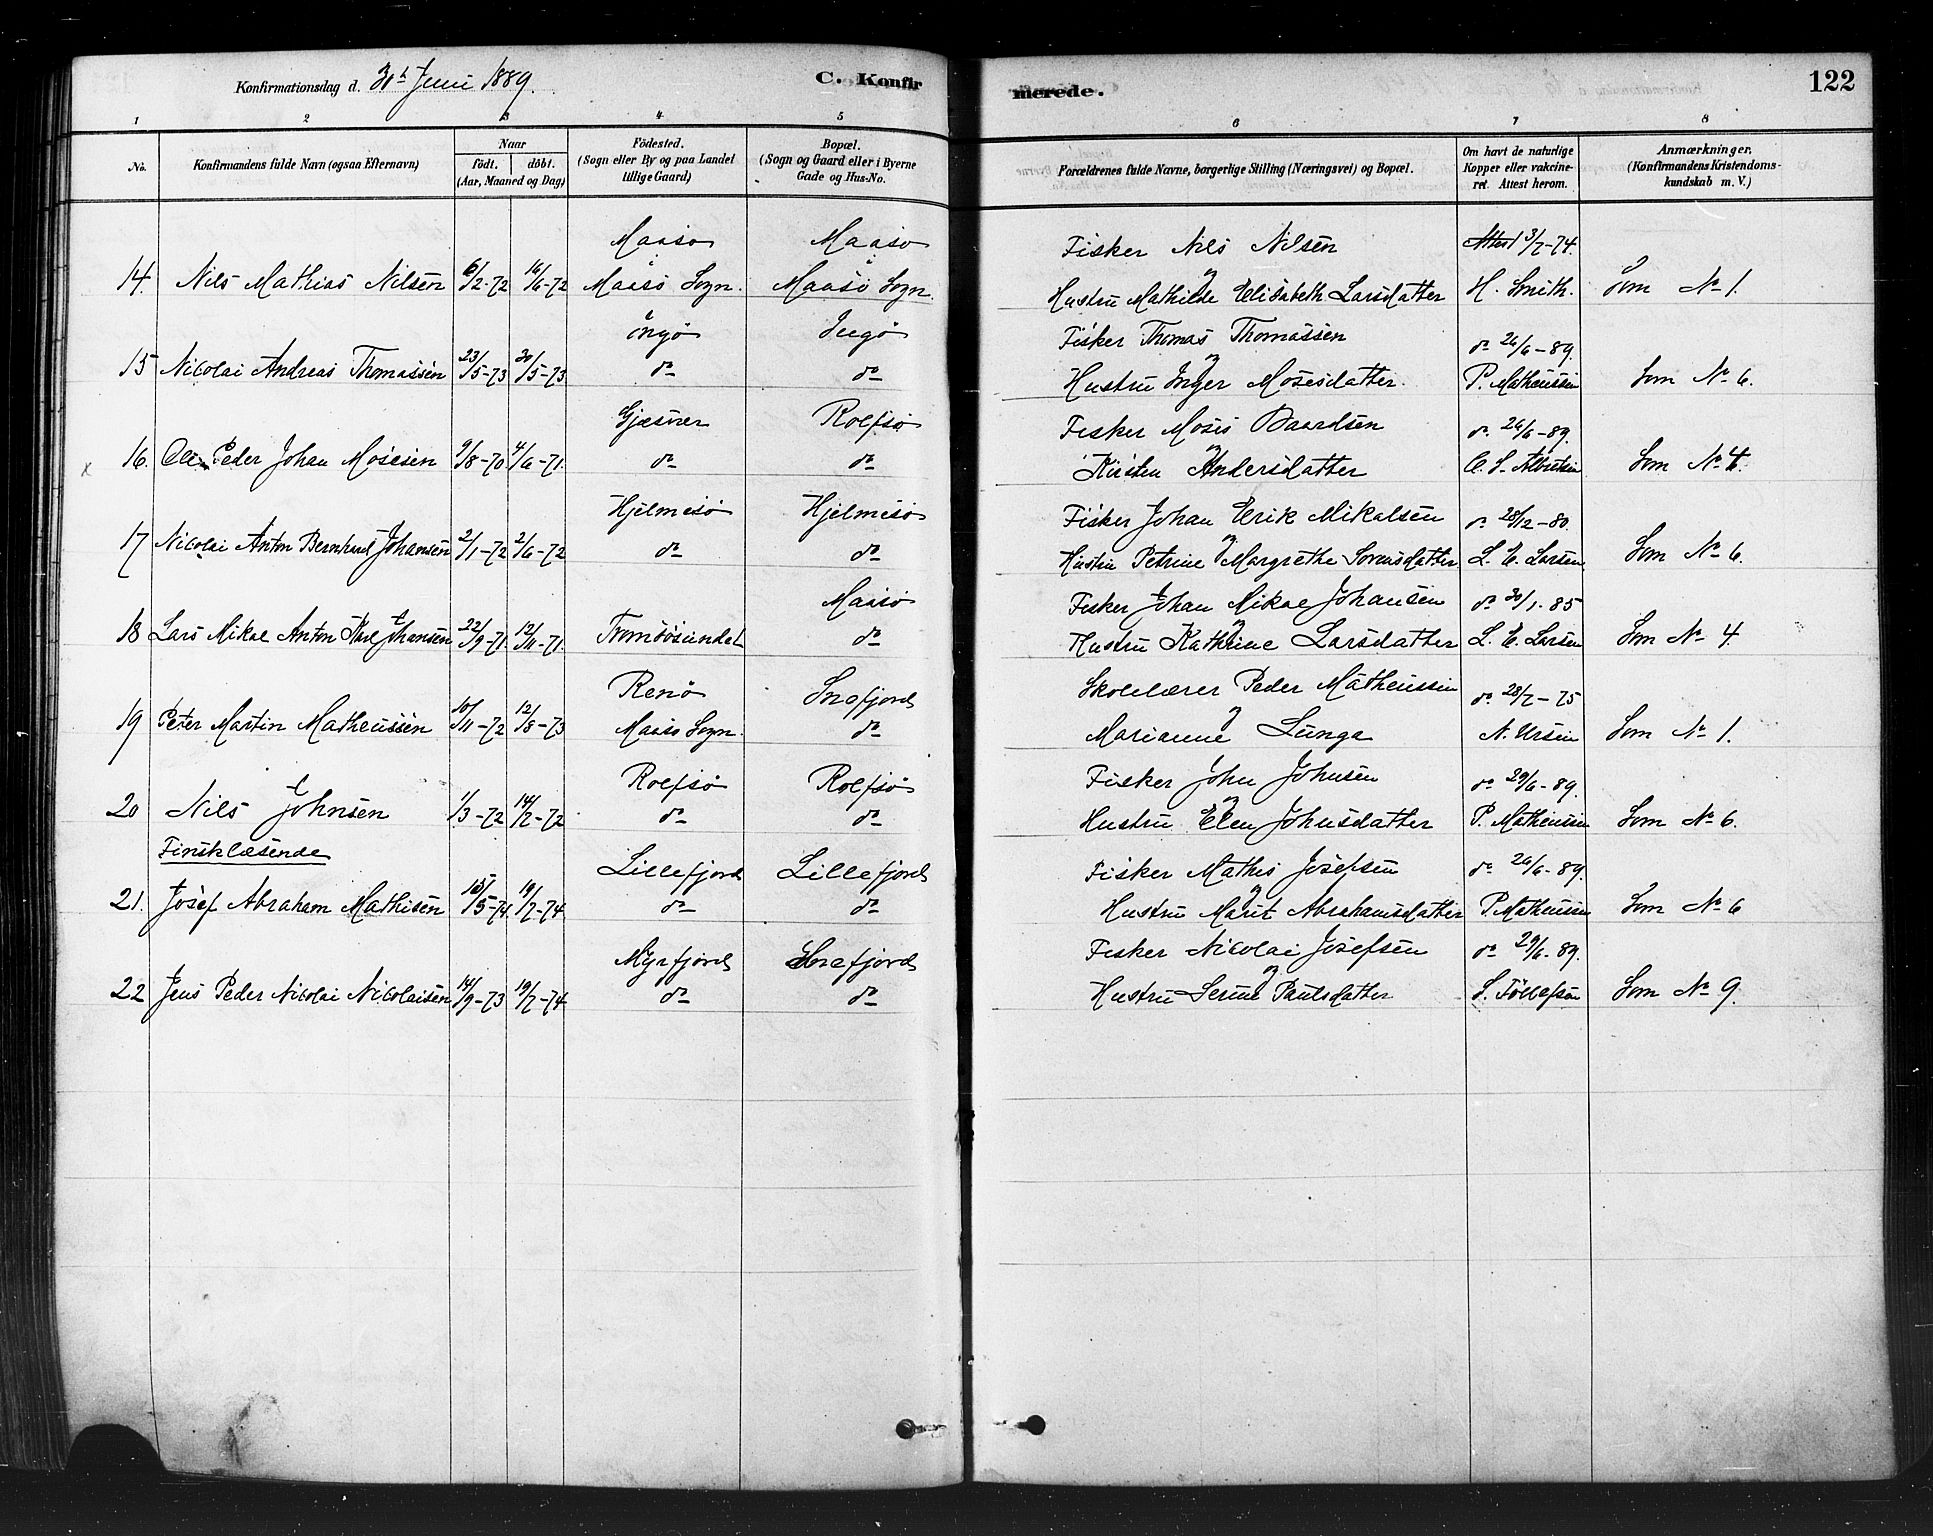 Konfirmationsdag d. 30te Juni 1889. C. Konfirmerede. 122
1 2 3 4 5 6 7 8
No. Konfirmandens fulde Navn (ogsaa Efternavn) Naar födt. döbt. (Aar, Maaned og Dag) Födested. (Sogn eller By og paa Landet tillige Gaard) Bopæl. (Sogn og Gaard eller i Byerne Gade og Hus-No. Forældrenes fulde Navne, borgerlige Stilling (Næringsvei) og Bopæl. Om havt de naturlige Kopper eller vakcineret. Attest herom. Anmærkninger. (Konfirmandens Kristendomskundskab m. V.)
Maasø Maasø Fisker Nils Nilsen Attest 3/7-74.
14. Nils Mathias Nilsen 6/2-72 16/6-72 Maasø Sogn. Maasø Sogn. og Hustru Mathilde Elisabeth Larsdatter H. Smith. Som No 1.
Ingø Ingø Fisker Thomas Thomassen do 26/6-89.
15 Nicolai Andreas Thomassen 23/5-73 30/5-73 do do og Hustru Inger Mosesdatter. P. Matheussen Som No 6.
Gjæsvær Rolfsø Fisker Moses Baardsen do 26/6-89.
x 16. Ole Peder Johan Mosesen 9/8-70 4/6-71. do do og Kirsten Andersdatter Som No 4.
Hjelmesø Hjelmesø Fisker Johan Erik Mikalsen do 28/12-80.
17 Nicolai Anton Bernhard Johansen 2/1-72 2/6-72 do do og Hustru Petrine Margrethe Sørensdatter L. E. Larsen Som No 6.
Maasø Fisker Johan Mikal Johansen do 30/1.85
18 Lars Mikal Anton Karl Johansen 22/9-71. 12/11-71. Tromsøsundet do og Hustru Kathrine Larsdatter L. E. Larsen Som No 4.
Renø Snefjord Skolelærer Peder Matheussen do 28/7-75
19 Peter Martin Matheussen 10/11-72 12/8-73 Maasø Sogn. do og Marianne Lunga N. Ursin Som No 1.
Rolfsø Rolfsø Fisker John Johnsen do 29/6-89.
20 Nils Johnsen 1/3-72 14/7-72 do do og Hustru Elen Johnsdatter P. Matheussen Som No 6.
Finsklæsende
Lillefjord Lillefjord Fisker Mathis Josefsen do 26/6-89.
21. Josef Abraham Mathisen /5-74. 19/7-74. do do og Hustru Marit Abrahamsdatter P. Matheussen Som No 6
Myrfjord Snefjord Fisker Nicolai Josefsen do 29/6.89.
22 Jens Peder Nicolai Nicolaisen 14/9-73 19/7-74. do do og Hustru Serine Paulsdatter S. Tollefsen Som No 9.